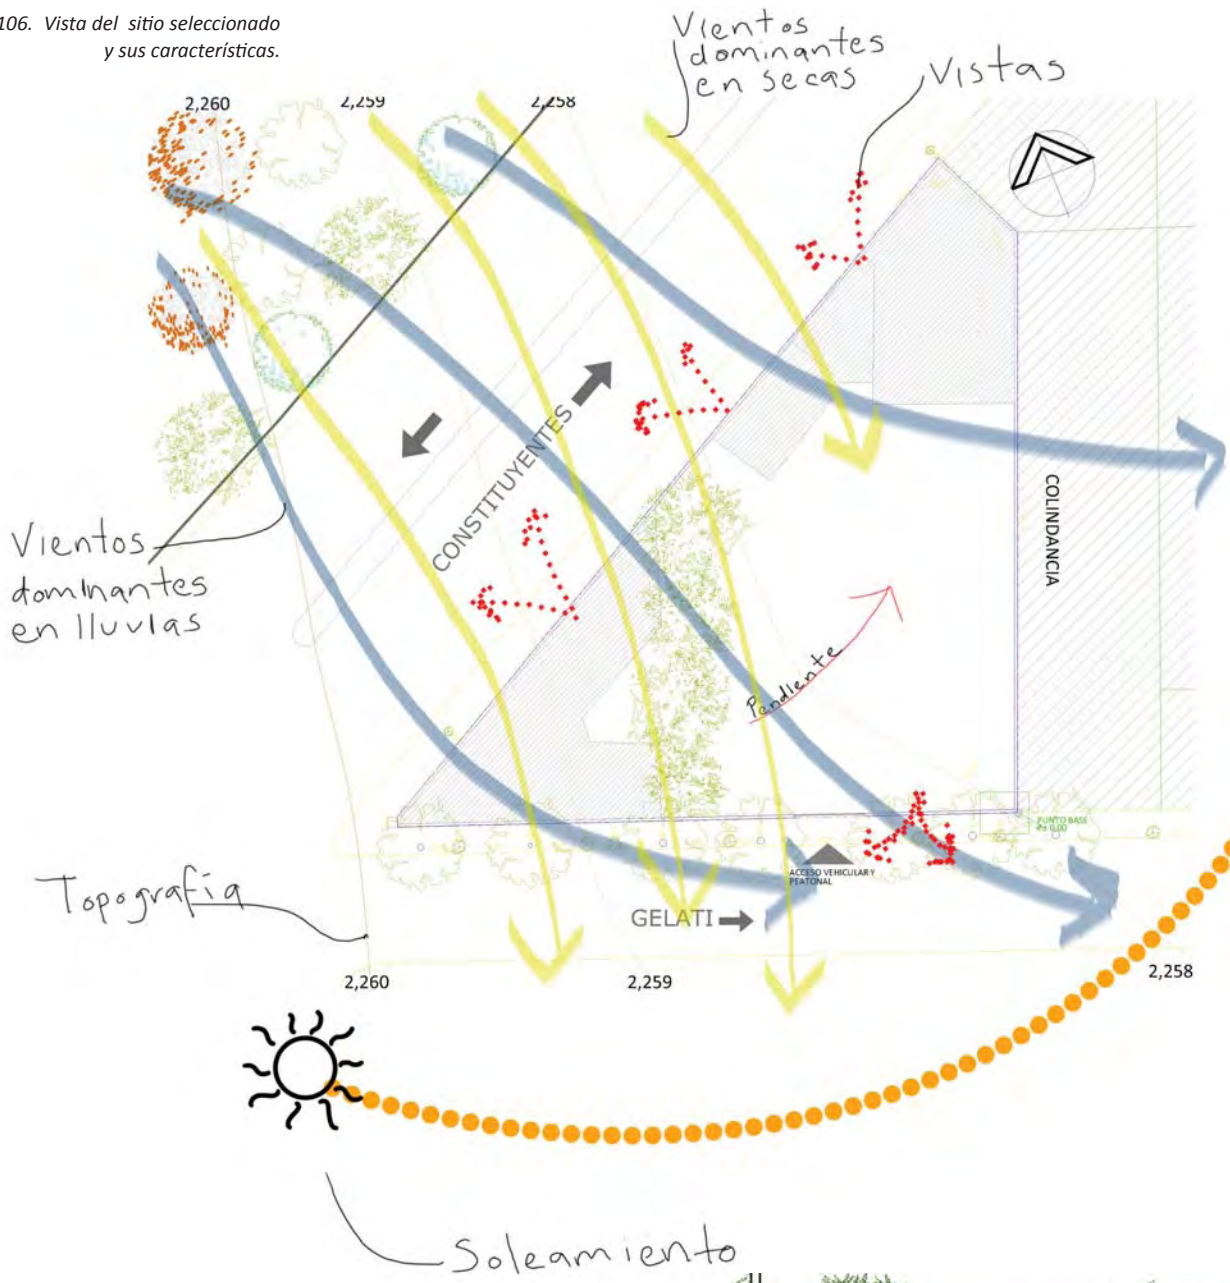 106. Vista del sitio seleccionado
y sus características.
Vientos
dominantes
en secas
Vistas
2,260
2,259
2,258
CONSTITUYENTES
COLINDANCIA
Vientos
dominantes
en lluvias
Pendiente
PUNTO BASE
± 0.00
ACCESO VEHICULAR Y
PEATONAL
Topografía
GELATI
2,260
2,259
2,258
Soleamiento